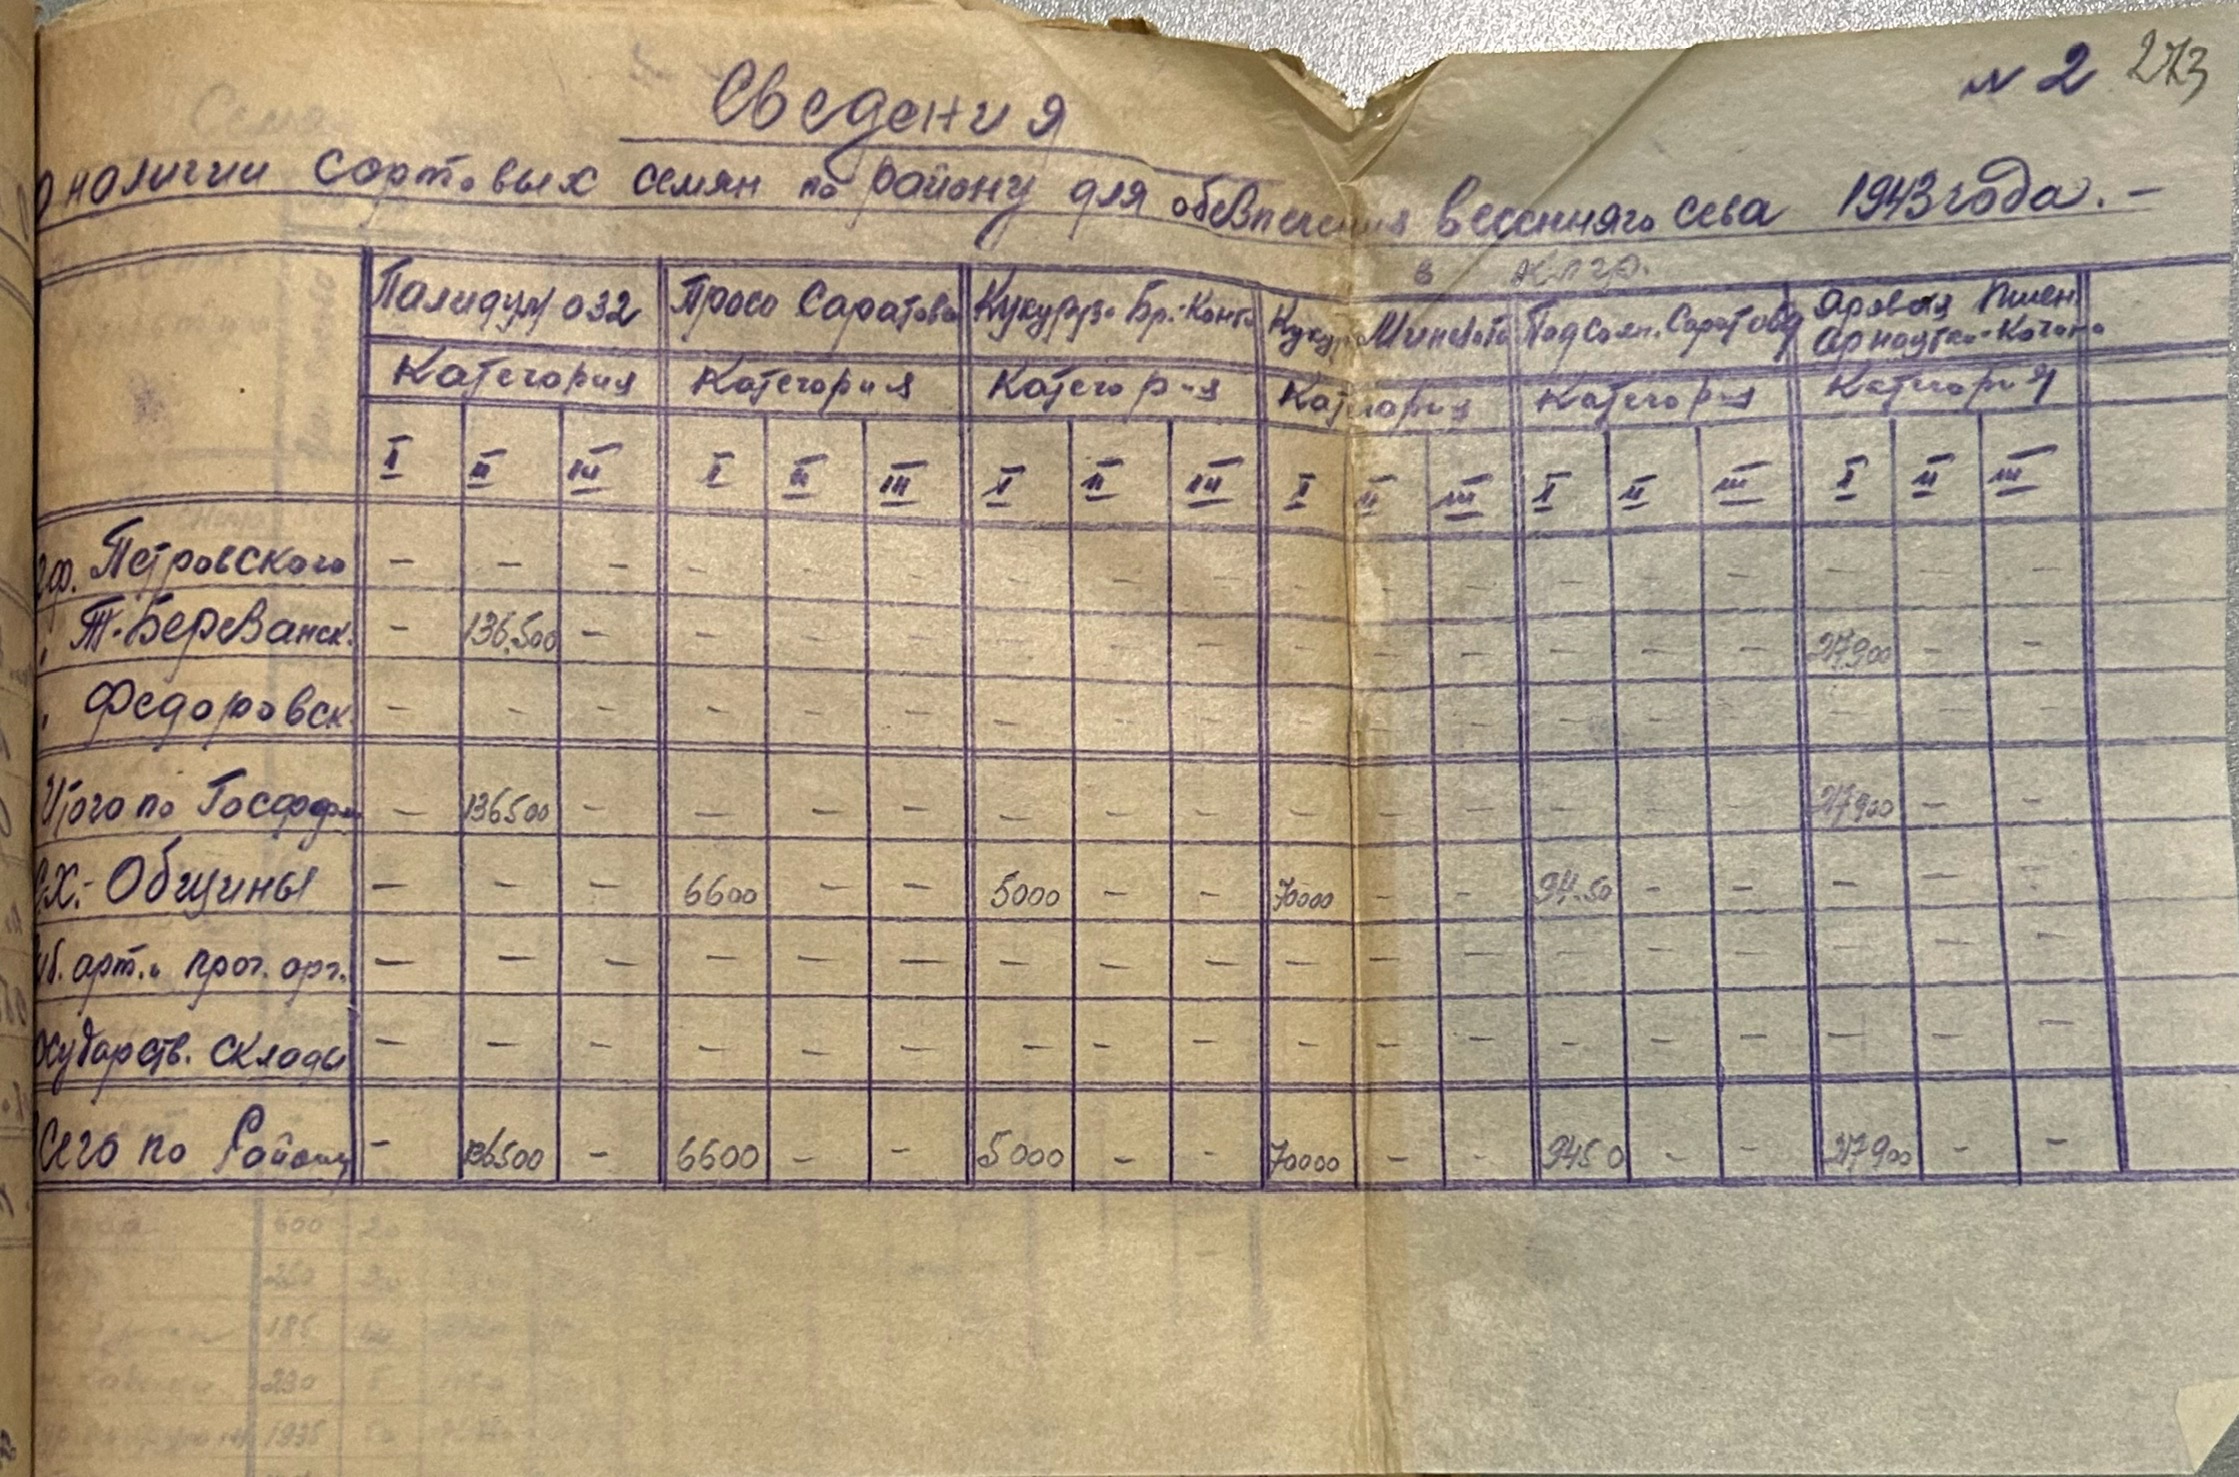 № 2 273
Сведения
О наличии сортовых семян по району для обезпечения весеннего сева 1943 года. -
в клгр.
Палидум 032 Просо Саратовс Кукуруза Бр.-Конт. Кукур. Минезота Подсолн. Саратовс Яровая Пшен.
Арнаутка-Кочина
Категория Категория Категория Категория Категория Категория
I II III I II III I II III I II III I II III I II III
Гф. Петровского - - - - - - - - - - - - - - - - - -
" Т.-Березанск. - 136.500 - - - - - - - - - - - - - 217900 - -
" Федоровск. - - - - - - - - - - - - - - - - - -
Итого по Госфрм - 136500 - - - - - - - - - - - - - 217900 - -
С.Х.- Общины - - - 6600 - - 5000 - - 70000 - - 94.50 - - - - -
уб. арт. и проч. орг. - - - - - - - - - - - - - - - - - -
осударств. склады - - - - - - - - - - - - - - - - - -
сего по Району - 136500 - 6600 - - 5000 - - 70000 - - 9450 - - 217900 - -